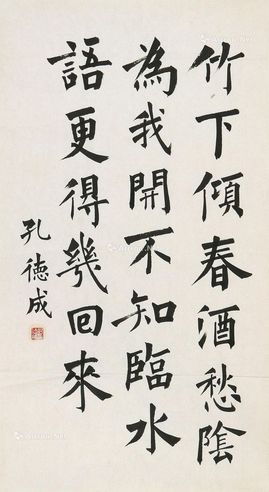 竹下傾春酒愁陰
為我開不知臨水
語更得幾回來
孔德成